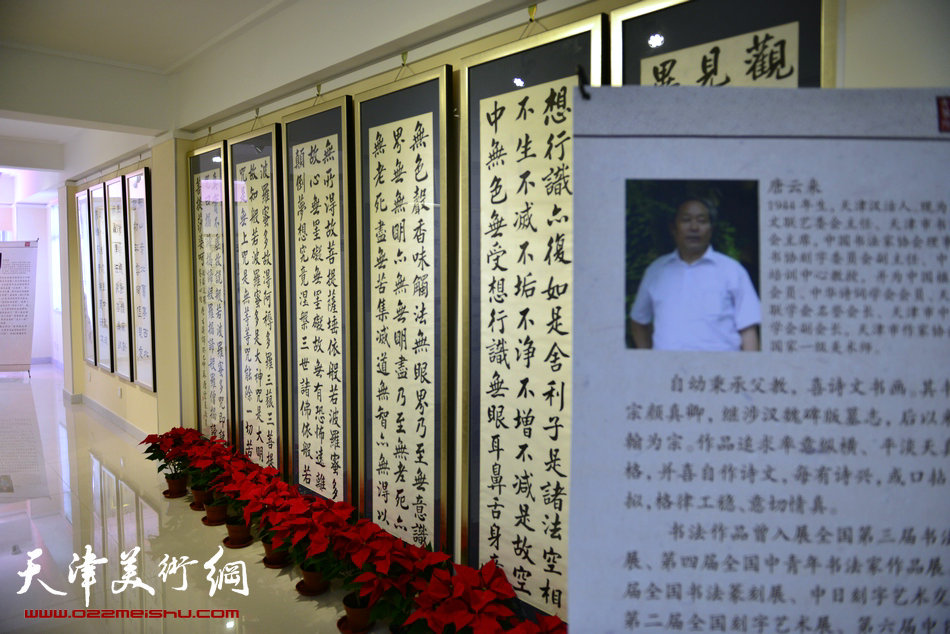 觀
見
想行識亦復如是舍利子是諸法空相
不生不滅不垢不净不增不减是故空
中無色無受想行識無眼耳鼻舌身意
無色聲香味觸法無眼界乃至無意識
界無無明亦無無明盡乃至無老死亦
無老死盡無苦集滅道無智亦無得以
無所得故菩提薩埵依般若波羅蜜多
故心無罣礙無罣礙故無有恐怖遠離
顛倒夢想究竟涅槃三世諸佛依般若
波羅蜜多故得阿耨多羅三藐三菩提
故知般若波羅蜜多是大神咒是大明
咒是無上咒是無等等咒能除一切苦
唐云来
1944年生，天津汉沽人。现为
文联艺委会主任、天津市
会主席、中国书法家协会理
书协刻字委员会副主任、中
培训中心教授，并为中国
会员、中华诗词学会会员、
联学会名誉会长、天津市
学会副会长、天津市作家协
国家一级美术师。
自幼秉承父教，喜诗文书画。其
宗颜真卿，继涉汉魏碑版墓志，后以
翰为宗。作品追求率意纵横、平淡天
格，并喜自作诗文，每有诗兴，或口拈
拟，格律工稳、意切情真。
书法作品曾入展全国第三届书法
展、第四届全国中青年书法家作品展
届全国书法篆刻展、中日刻字艺术交
第二届全国刻字艺术展、第六届中
天津美術網
www.022meishu.com